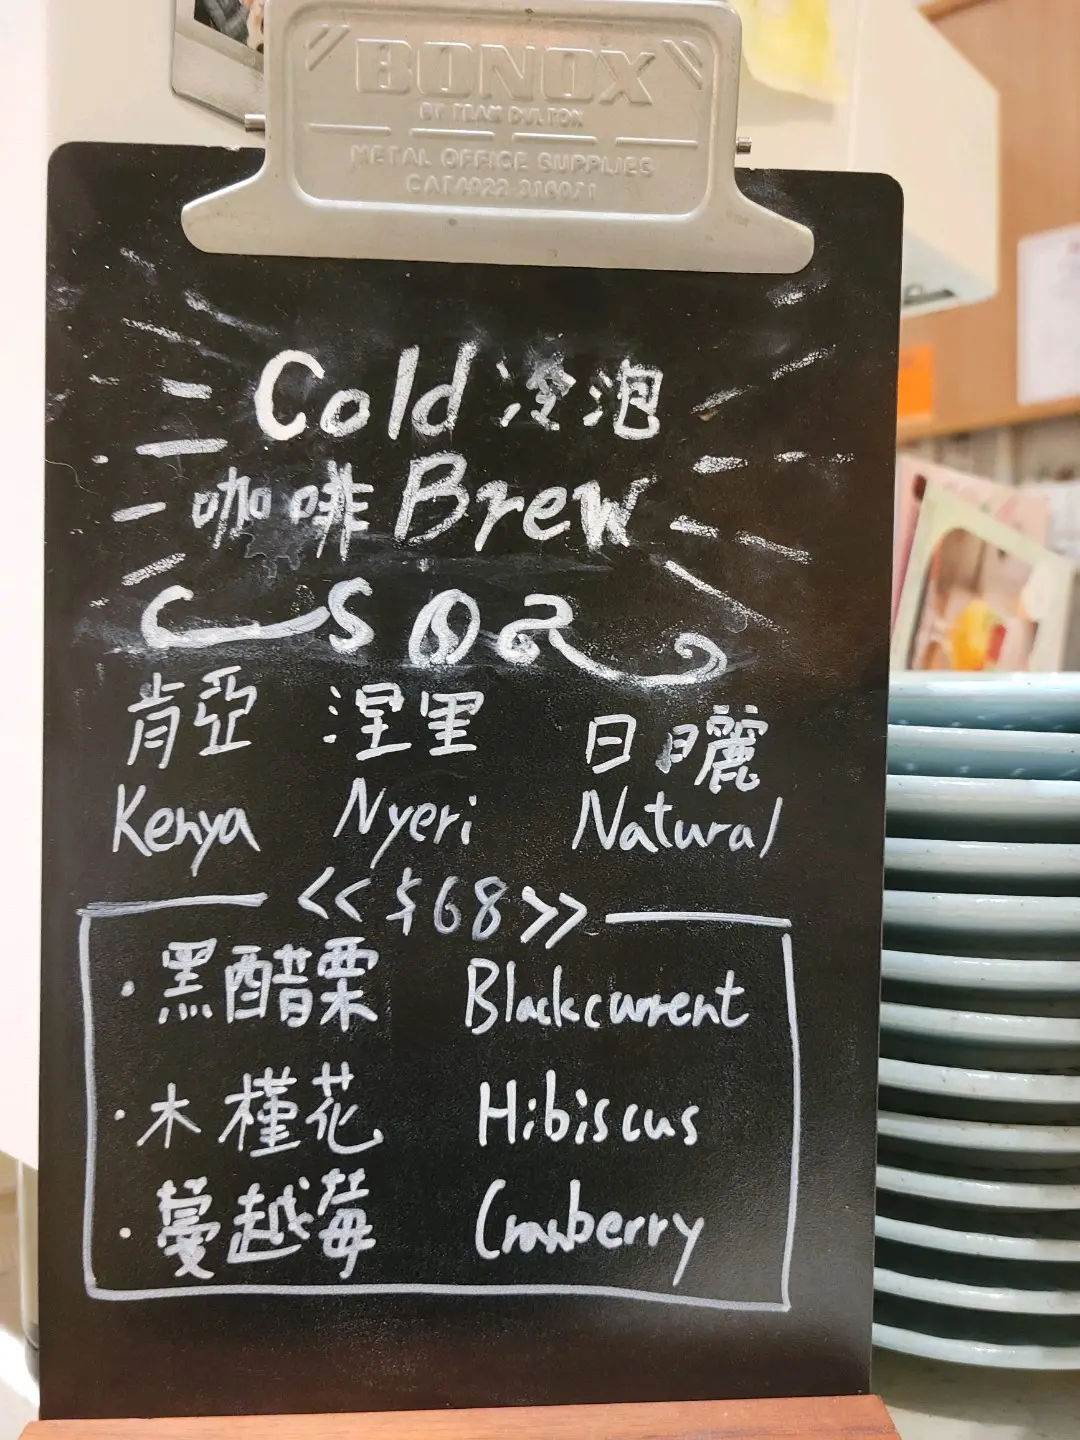 BONOX
BY TEAM DULTON
METAL OFFICE SUPPLIES
Cold 冷泡
咖啡 Brew
肯亞 涅里 日曬
Kenya Nyeri Natural
<< $68 >>
· 黑醋栗 Blackcurrent
· 木槿花 Hibiscus
· 蔓越莓 Cranberry